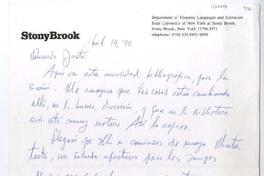 StonyBrook
Department of Hispanic Languages and Literature
State University of New York at Stony Brook
Stony Brook, New York 11794-3371
telephone: (516)
Abril 19, 90
Querido Justo:
Aquí va esta curiosidad bibliográfica, para la
Me imagino que las cosas están cambiando
allí, en la buena dirección, y que en la Biblioteca
eso está muy notorio. Así lo espero.
Llegaré por allí a comienzos de mayo. Mientras
tanto, un saludo afectuoso para los amigos